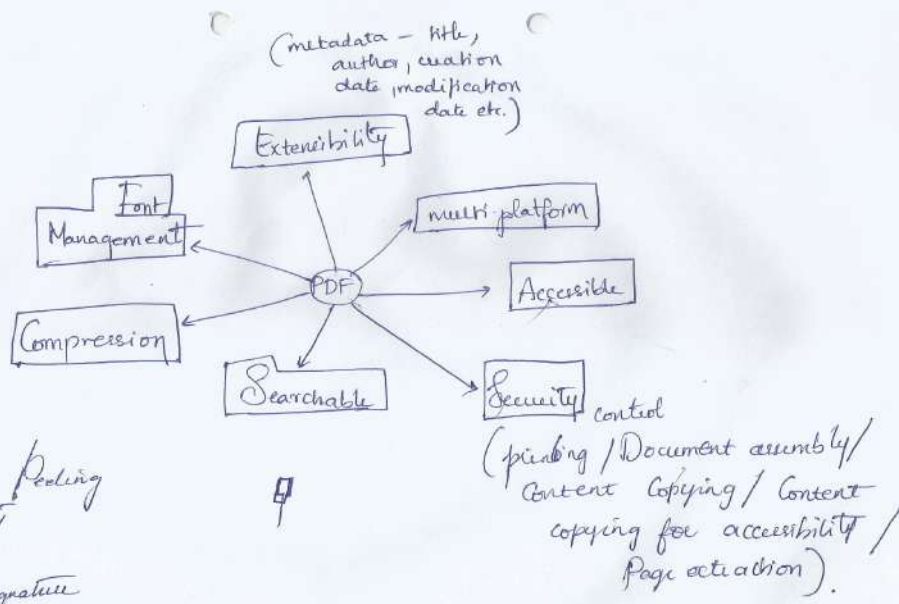 (metadata - title,
author, creation
date, modification
date etc.)
Extensibility
Font
Management
multi-platform
PDF
Accessible
Compression
Searchable
Security control
(printing / Document assembly /
Content Copying / Content
copying for accessibility /
Page extraction).